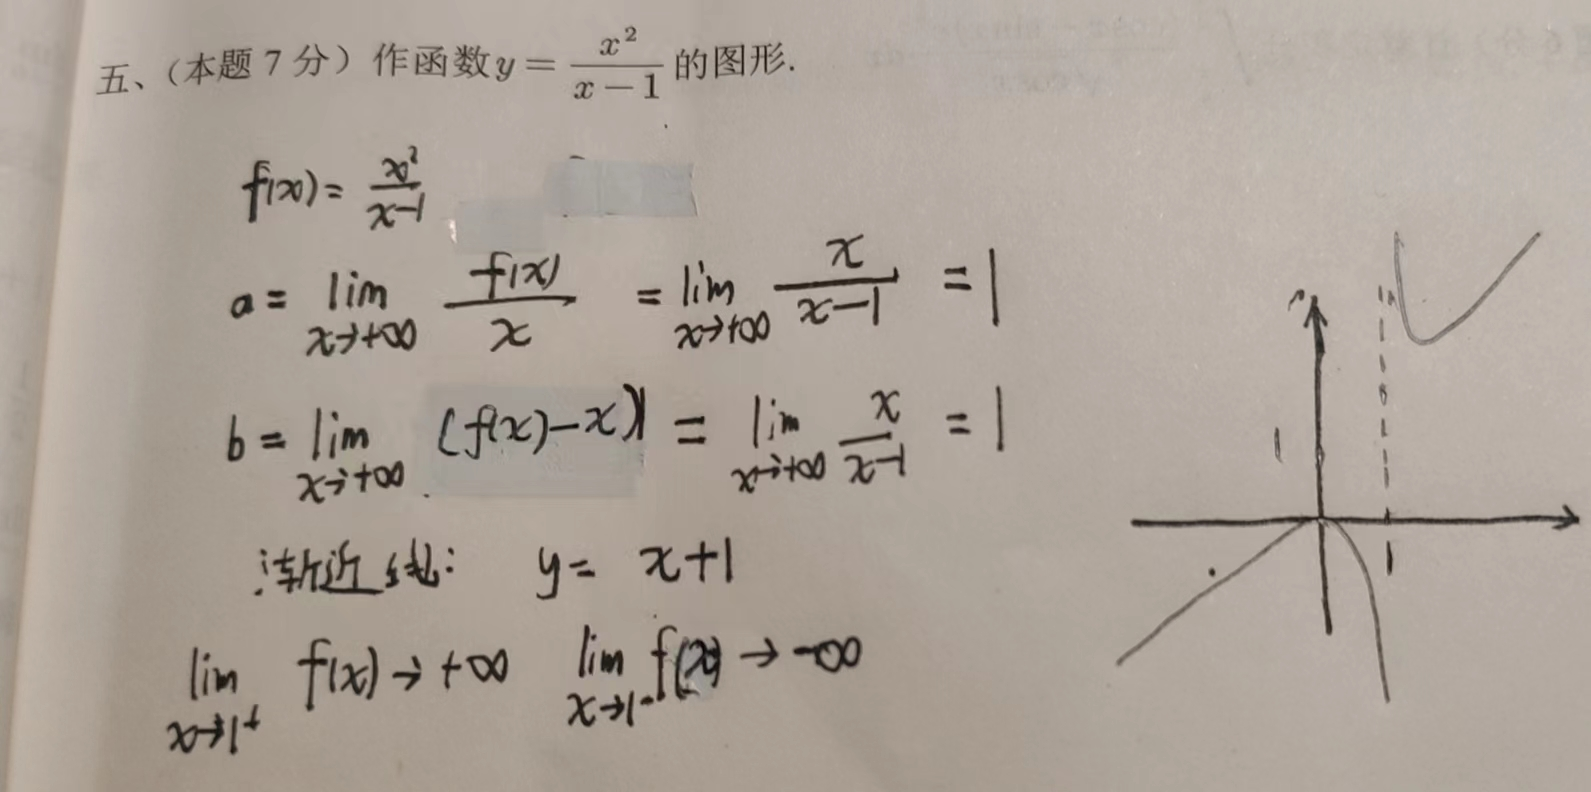 五、(本题 7 分) 作函数 y = x²/(x − 1) 的图形.
f(x) = x²/(x−1)
a = lim x→+∞ f(x)/x = lim x→+∞ x/(x−1) = 1
b = lim x→+∞ (f(x)−x) = lim x→+∞ x/(x−1) = 1
渐近线: y = x+1
lim x→1⁺ f(x) → +∞ lim x→1⁻ f(x) → −∞
1
1